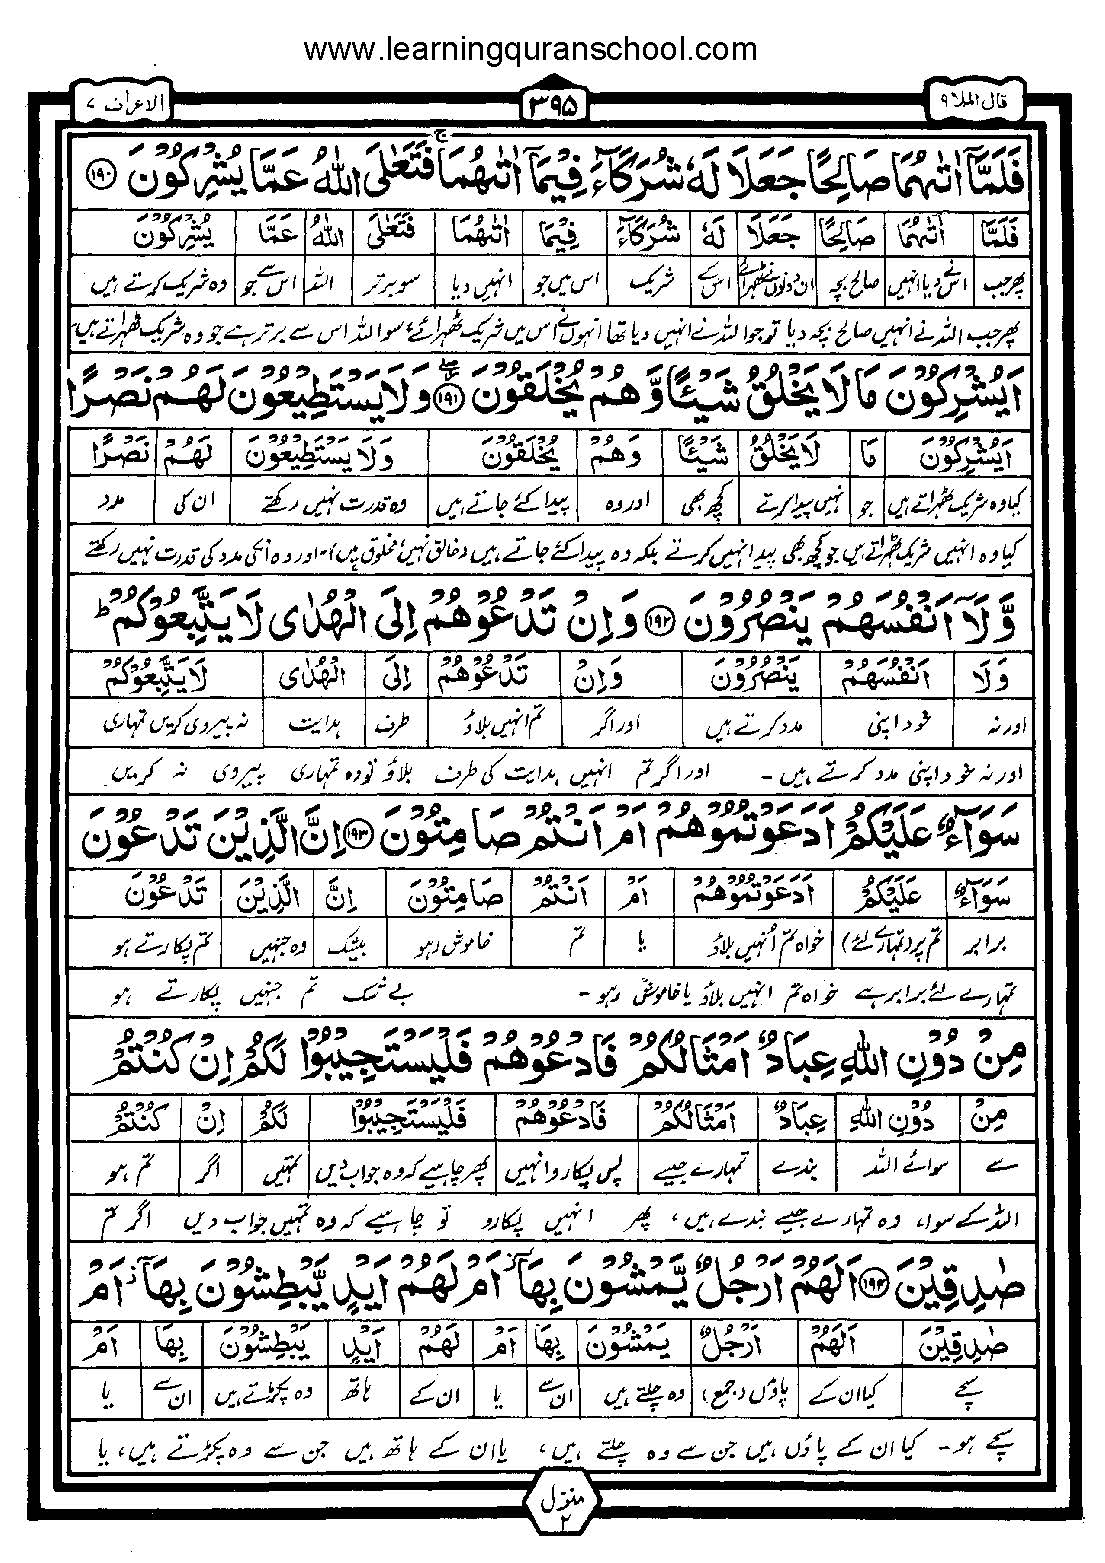 www.learningquranschool.com
قال الملا ٩
٣٩٥
الاعراف ٧
فَلَمَّآ اٰتٰىهُمَا صَالِحًا جَعَلَا لَهٗ شُرَكَآءَ فِيْمَآ اٰتٰىهُمَا ۚ فَتَعٰلَى اللّٰهُ عَمَّا يُشْرِكُوْنَ ﴿۱۹۰﴾
فَلَمَّآ اٰتٰىهُمَا صَالِحًا جَعَلَا لَهٗ شُرَكَآءَ فِيْمَآ اٰتٰىهُمَا فَتَعٰلَى اللّٰهُ عَمَّا يُشْرِكُوْنَ
پھر جب اس نے دیا انہیں صالح بچہ ان دونوں نے ٹھہرائے اس کے شریک اس میں جو انہیں دیا سو برتر اللہ اس سے جو وہ شریک کرتے ہیں
پھر جب اللہ نے انہیں صالح بچہ دیا تو جو اللہ نے انہیں دیا تھا انہوں نے اس میں شریک ٹھہرائے، سو اللہ اس سے برتر ہے جو وہ شریک ٹھہراتے ہیں
اَيُشْرِكُوْنَ مَا لَا يَخْلُقُ شَيْئًا وَّهُمْ يُخْلَقُوْنَ ﴿۱۹۱﴾ وَلَا يَسْتَطِيْعُوْنَ لَهُمْ نَصْرًا
اَيُشْرِكُوْنَ مَا لَا يَخْلُقُ شَيْئًا وَهُمْ يُخْلَقُوْنَ وَلَا يَسْتَطِيْعُوْنَ لَهُمْ نَصْرًا
کیا وہ شریک ٹھہراتے ہیں جو نہیں پیدا کرتے کچھ بھی اور وہ پیدا کئے جاتے ہیں وہ قدرت نہیں رکھتے ان کی مدد
کیا وہ انہیں شریک ٹھہراتے ہیں جو کچھ بھی پیدا نہیں کرتے بلکہ وہ پیدا کئے جاتے ہیں (خالق نہیں، مخلوق ہیں)۔ اور وہ انکی مدد کی قدرت نہیں رکھتے
وَّلَآ اَنْفُسَهُمْ يَنْصُرُوْنَ ﴿۱۹۲﴾ وَاِنْ تَدْعُوْهُمْ اِلَى الْهُدٰى لَا يَتَّبِعُوْكُمْ ؕ
وَلَآ اَنْفُسَهُمْ يَنْصُرُوْنَ وَاِنْ تَدْعُوْهُمْ اِلَى الْهُدٰى لَا يَتَّبِعُوْكُمْ
اور نہ خود اپنی مدد کرتے ہیں اور اگر تم انہیں بلاؤ طرف ہدایت نہ پیروی کریں تمہاری
اور نہ خود اپنی مدد کرتے ہیں۔ اور اگر تم انہیں ہدایت کی طرف بلاؤ تو وہ تمہاری پیروی نہ کریں
سَوَآءٌ عَلَيْكُمْ اَدَعَوْتُمُوْهُمْ اَمْ اَنْتُمْ صَامِتُوْنَ ﴿۱۹۳﴾ اِنَّ الَّذِيْنَ تَدْعُوْنَ
سَوَآءٌ عَلَيْكُمْ اَدَعَوْتُمُوْهُمْ اَمْ اَنْتُمْ صَامِتُوْنَ اِنَّ الَّذِيْنَ تَدْعُوْنَ
برابر تم پر (تمہارے لئے) خواہ تم انہیں بلاؤ یا تم خاموش رہو بیشک وہ جنہیں تم پکارتے ہو
تمہارے لئے برابر ہے خواہ تم انہیں بلاؤ یا خاموش رہو۔ بے شک تم جنہیں پکارتے ہو
مِنْ دُوْنِ اللّٰهِ عِبَادٌ اَمْثَالُكُمْ فَادْعُوْهُمْ فَلْيَسْتَجِيْبُوْا لَكُمْ اِنْ كُنْتُمْ
مِنْ دُوْنِ اللّٰهِ عِبَادٌ اَمْثَالُكُمْ فَادْعُوْهُمْ فَلْيَسْتَجِيْبُوْا لَكُمْ اِنْ كُنْتُمْ
سے سوائے اللہ بندے تمہارے جیسے پس پکارو انہیں پھر چاہیے کہ وہ جواب دیں تمہیں اگر تم ہو
اللہ کے سوا، وہ تمہارے جیسے بندے ہیں، پھر انہیں پکارو تو چاہیے کہ وہ تمہیں جواب دیں اگر تم
صٰدِقِيْنَ ﴿۱۹۴﴾ اَلَهُمْ اَرْجُلٌ يَّمْشُوْنَ بِهَآ ۡ اَمْ لَهُمْ اَيْدٍ يَّبْطِشُوْنَ بِهَآ ۡ اَمْ
صٰدِقِيْنَ اَلَهُمْ اَرْجُلٌ يَمْشُوْنَ بِهَا اَمْ لَهُمْ اَيْدٍ يَبْطِشُوْنَ بِهَا اَمْ
سچے کیا ان کے پاؤں (جمع) وہ چلتے ہیں ان سے یا ان کے ہاتھ وہ پکڑتے ہیں ان سے یا
سچے ہو۔ کیا ان کے پاؤں ہیں جن سے وہ چلتے ہیں، یا ان کے ہاتھ ہیں جن سے وہ پکڑتے ہیں، یا
منزل
٢